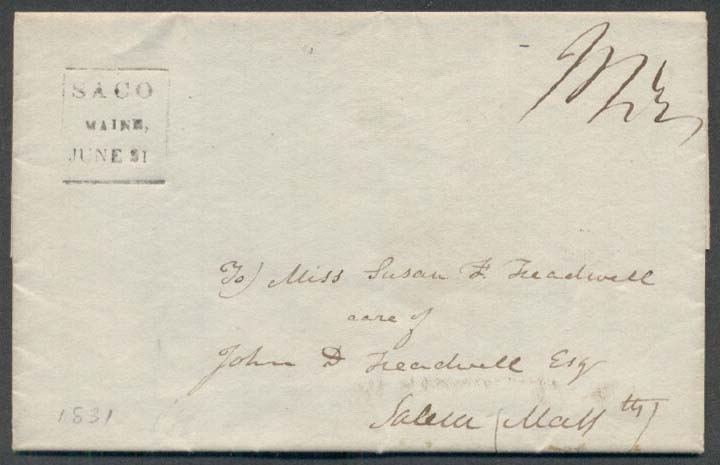 SACO
MAINE,
JUNE 21
12½
To) Miss Susan F Treadwell
care of
John D Treadwell Esq
Salem (Mass th)
1831